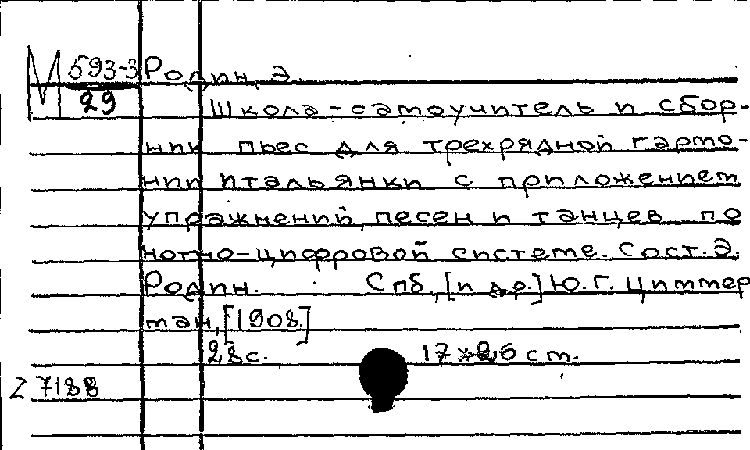 М 593-3 Родин, Э.
29
Школа-самоучитель и сбор-
ник пьес для трехрядной гармо-
нии итальянки с приложением
упражнений, песен и танцев по
нотно-цифровой системе. Сост. Э.
Родин. Спб., [и др.] Ю. Г. Циммер
ман, [1908.]
28 с. 17×26 см.
Z 7188